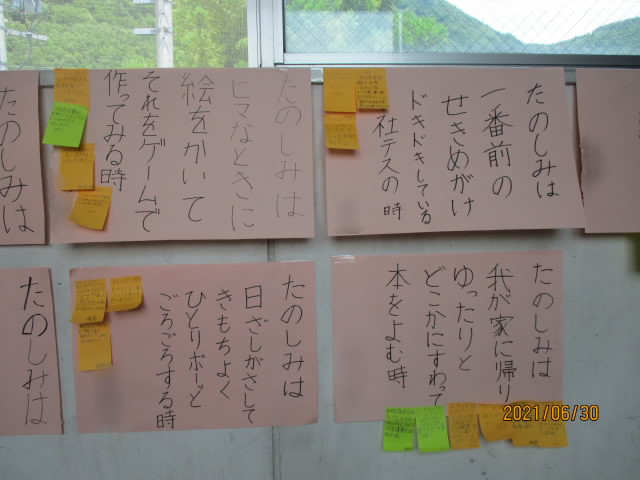 たのしみは
一番前の
せきめがけ
ドキドキしている
社テスの時
たのしみは
ヒマなときに
絵をかいて
それをゲームで
作ってみる時
たのしみは
たのしみは
我が家に帰り
ゆったりと
どこかにすわって
本をよむ時
たのしみは
日ざしがさして
きもちよく
ひとりボーッと
ごろごろする時
たのしみは
2021/06/30